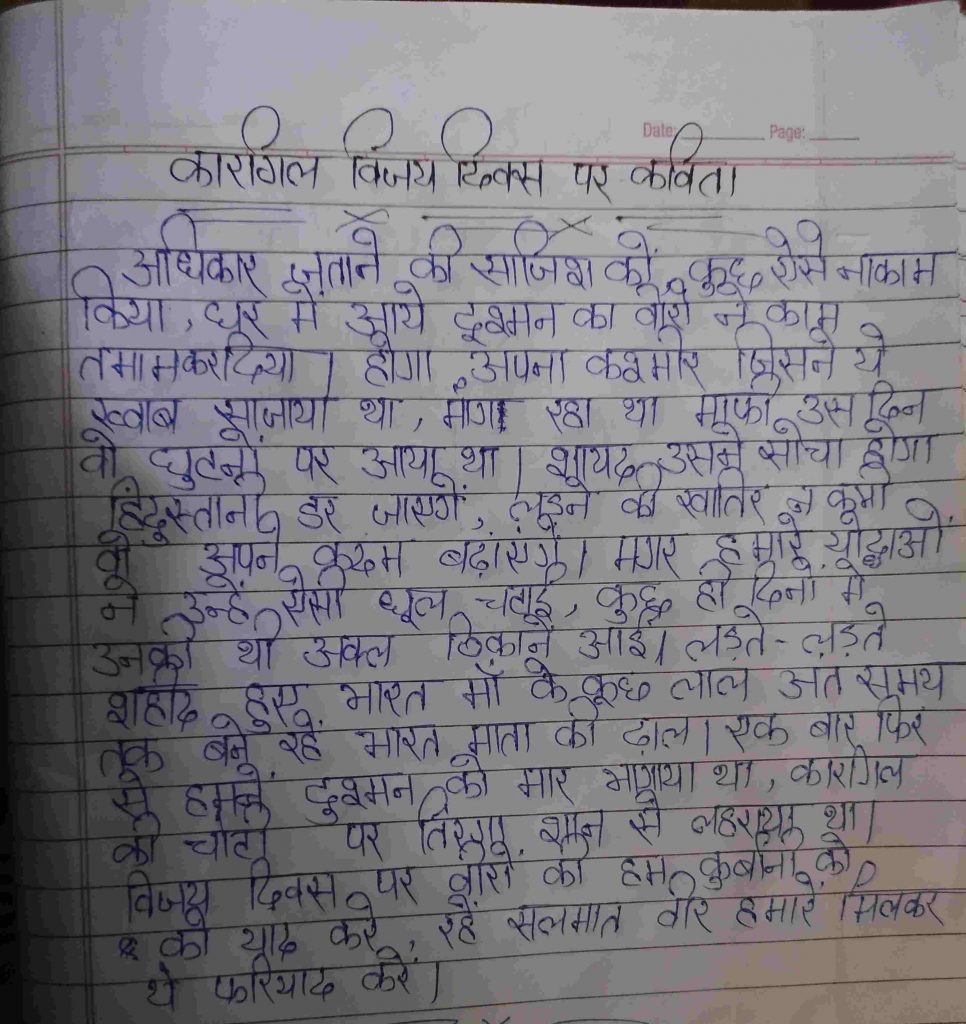 Date: Page:
कारगिल विजय दिवस पर कविता
अधिकार जताने की साजिश को, कुछ ऐसे नाकाम
किया, घर में आये दुश्मन का वीरो ने काम
तमामकरदिया। होगा अपना कश्मीर जिसने ये
ख्वाब साजाया था, मांग रहा था माफी उस दिन
वो घुटनो पर आया था। शायद उसने सोचा होगा
हिंदुस्तानी डर जाएगें, लड़ने की खातिर न कभी
वो अपने कदम बढ़ांएगें। मगर हमारे योद्धाओं
ने उन्हें ऐसी धूल चटाई, कुछ ही दिनों में
उनकी थी अक्ल ठिकाने आई। लड़ते-लड़ते
शहीद हुए भारत माँ के कुछ लाल अंत समय
तक बने रहे भारत माता की ढ़ाल। एक बार फिर
से हमने दुश्मन को मार भागाया था, कारगिल
की चोटी पर तिरंगा शान से लहराया था।
विजय दिवस पर वीरो की हम कुर्बानी को
को याद करे, रहें सलमात वीर हमारे मिलकर
ये फरियाद करें।